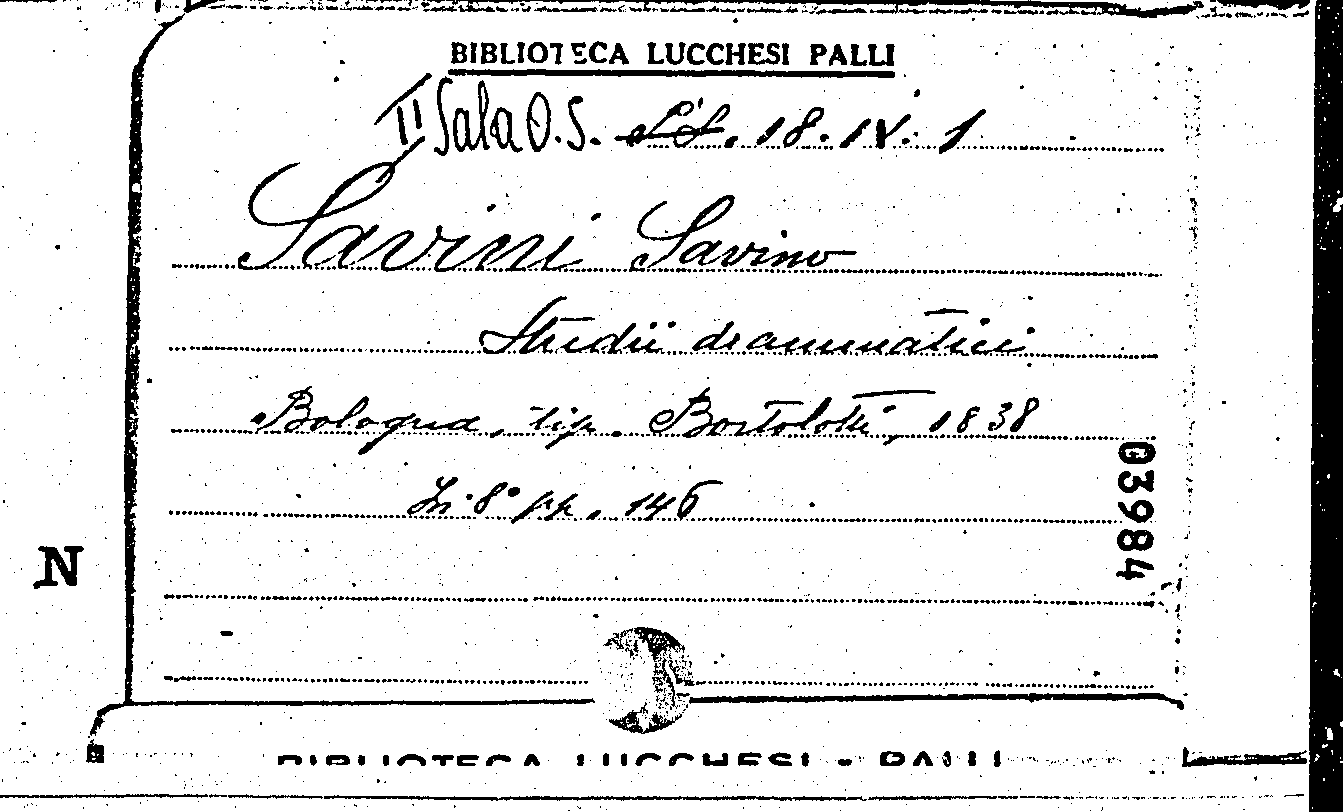 BIBLIOTECA LUCCHESI PALLI
II Sala O.S. 18. IV. 1
Savini Savino
Studii drammatici
Bologna, tip. Bortolotti, 1838
In 8° pp. 146
03984
N
BIBLIOTECA LUCCHESI - PALLI